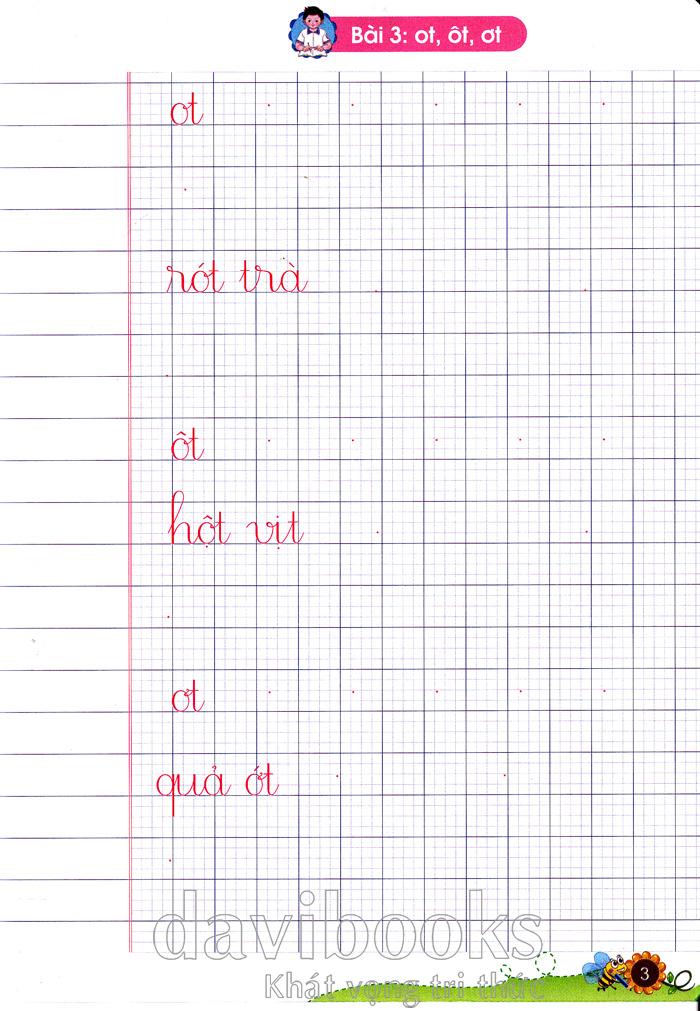 Bài 3: ot, ôt, ơt
ot
rót trà
ôt
hột vịt
ơt
quả ớt
davibooks
Khát vọng tri thức
3